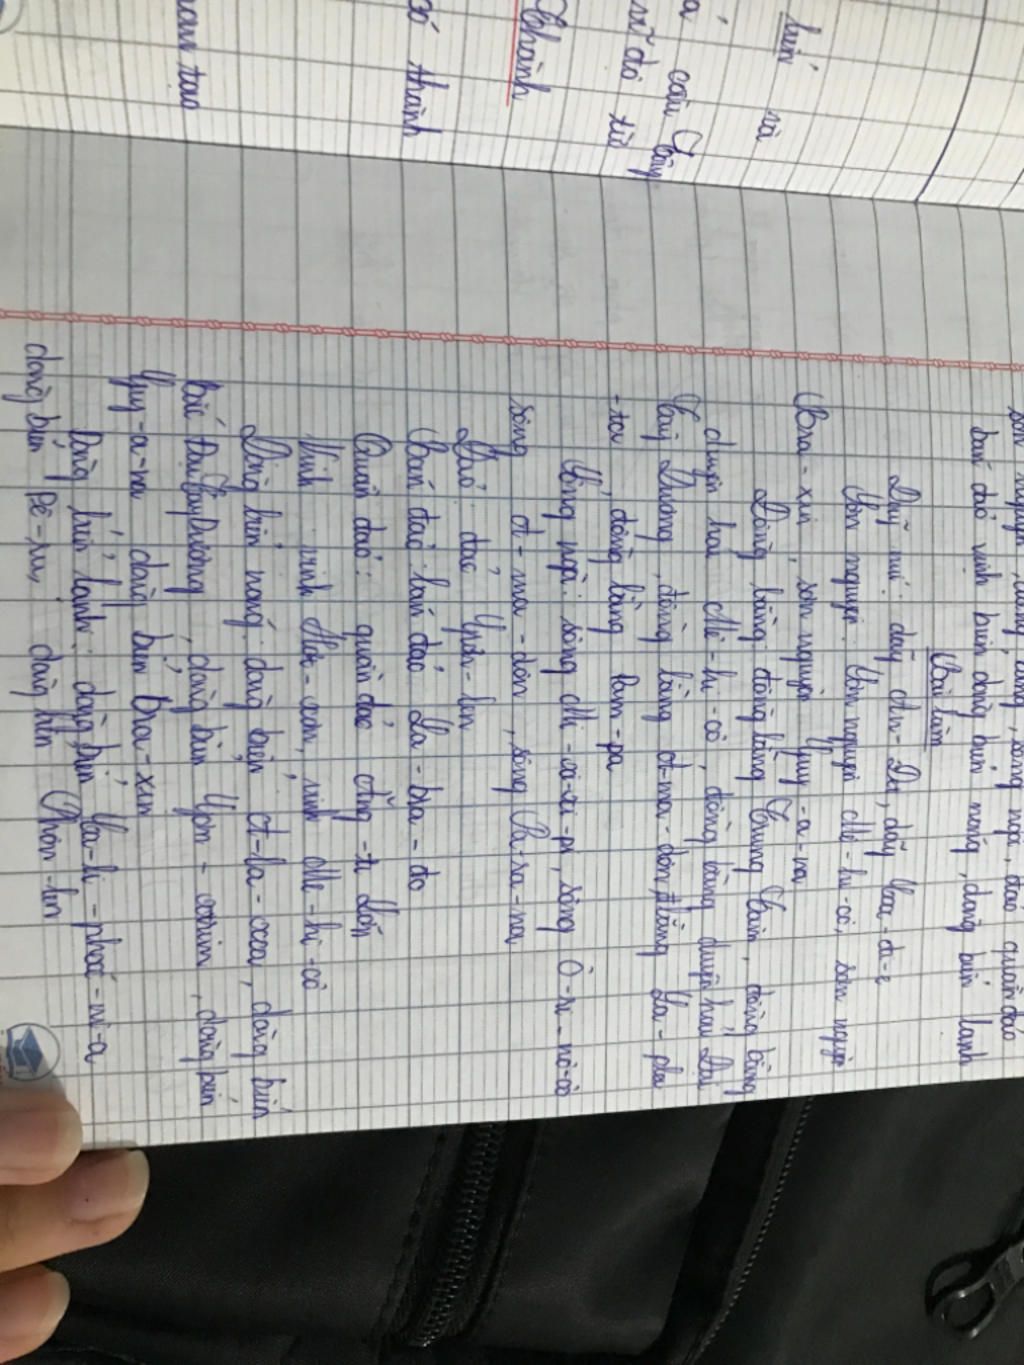 sơn nguyên, đồng bằng, sông ngòi, đảo quần đảo
bán đảo vịnh biển dòng biển nóng, dòng biển lạnh
Bài làm
Dãy núi: dãy An-Đet, dãy
Sơn nguyên: Sơn nguyên Mê-hi-cô, sơn nguyên
Bra-xin, sơn nguyên Guy-a-na
Đồng bằng: đồng bằng Trung tâm, đồng bằng
duyên hải Mê-hi-cô, đồng bằng duyên hải Đại
Tây Dương, đồng bằng A-ma-dôn, bằng La-pla
-ta, đồng bằng Pam-pa
Sông ngòi: sông Mi-xi-xi-pi, sông Ô-ri-nô-cô
sông A-ma-dôn, sông Pa-ra-na
Đảo: đảo Grơn-len
Bán đảo: bán đảo La-bra-đo
Quần đảo: quần đảo Ăng-ti Lớn
Vịnh: vịnh Hớt-xơn, vịnh Mê-hi-cô
Dòng biển nóng: dòng biển A-la-xca, dòng biển
Bắc Đại Tây Dương, dòng biển Gơn-xtrim, dòng biển
Guy-a-na dòng biển Bra-xin
Dòng biển lạnh: dòng biển Ca-li-phoóc-ni-a
dòng biển Pê-ru, dòng biển Phôn-len
biển và
á cầu Tây
từ đó từ
Thành
có thành
tạo